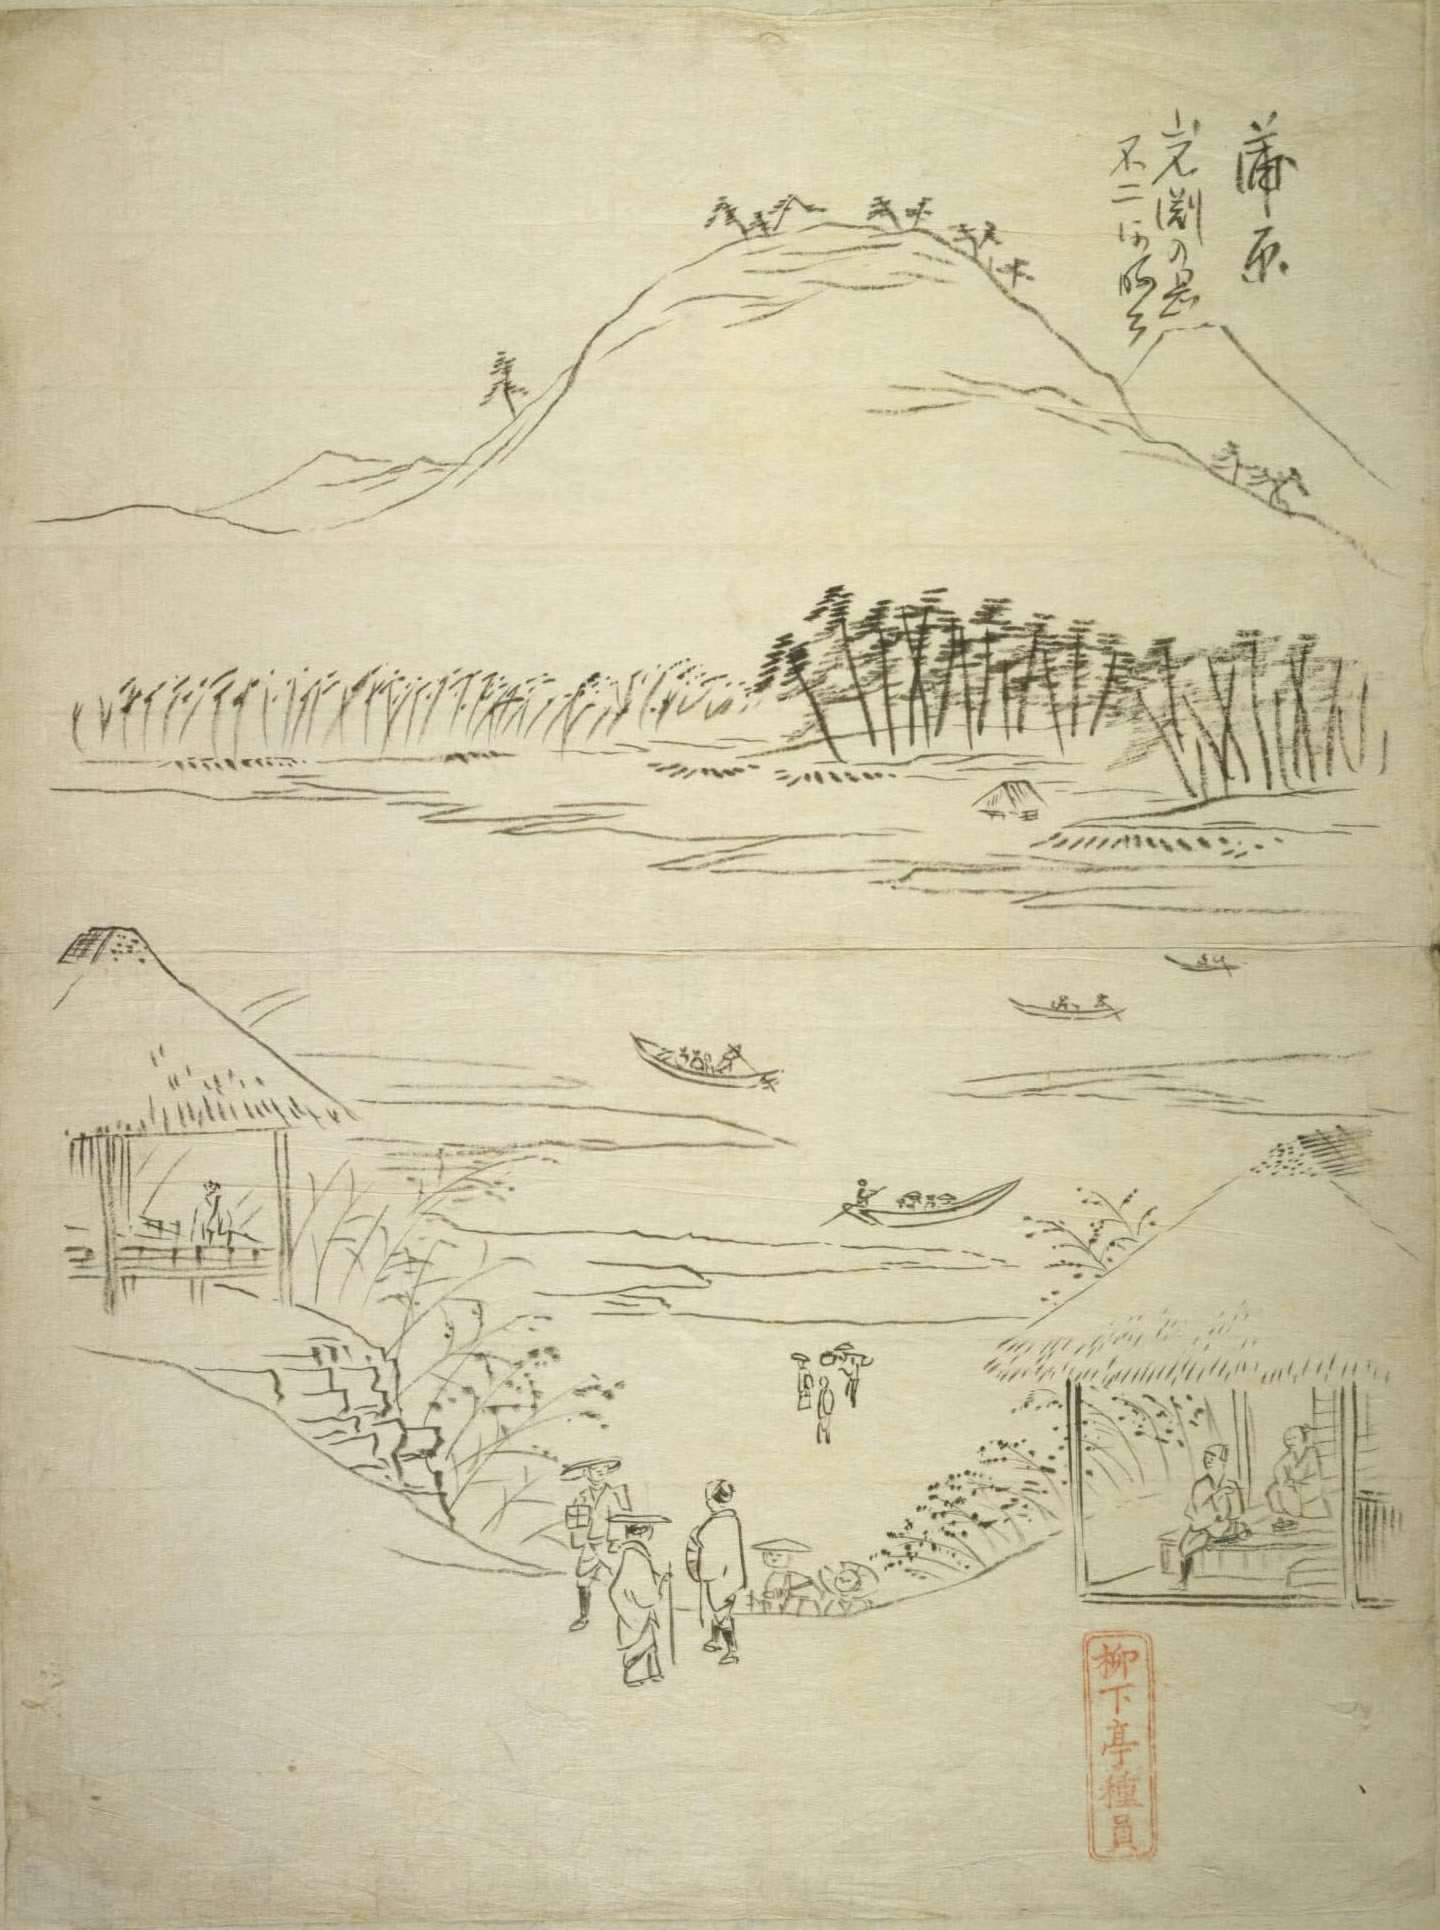 蒲原
岩淵の景
不二川眺望
柳下亭種員